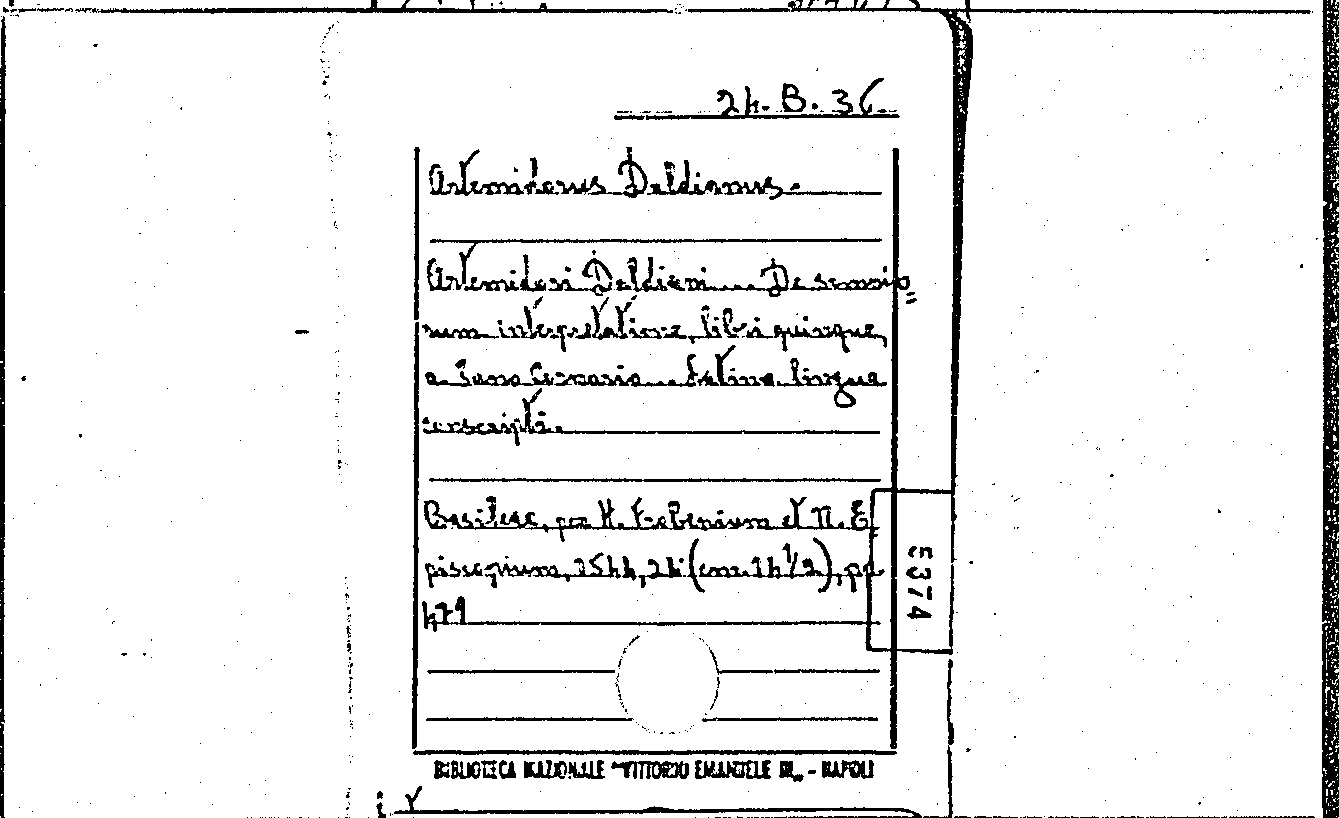 24. B. 36.
Artemidorus Daldianus.
Artemidori Daldiani... De somnio=
rum interpretatione, libri quinque,
a Jano Cornario... Latina lingua
conscripti.
Basileae, per H. Frobenium et N. E
piscopium, 1544, 24 (cm. 14 1/2), pp
479
5374
BIBLIOTECA NAZIONALE "VITTORIO EMANUELE III„ - NAPOLI